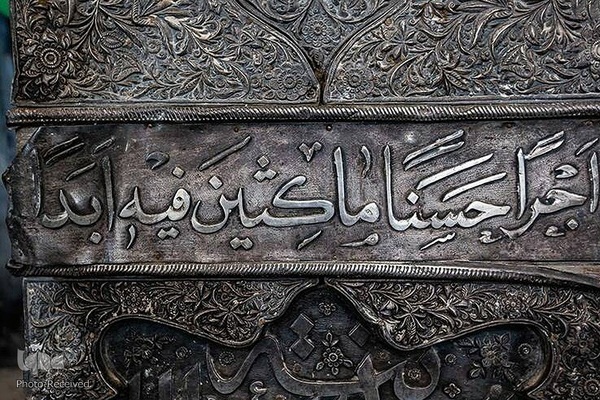 اجرا حسنا ماكثين فيه ابدا
Photo Received